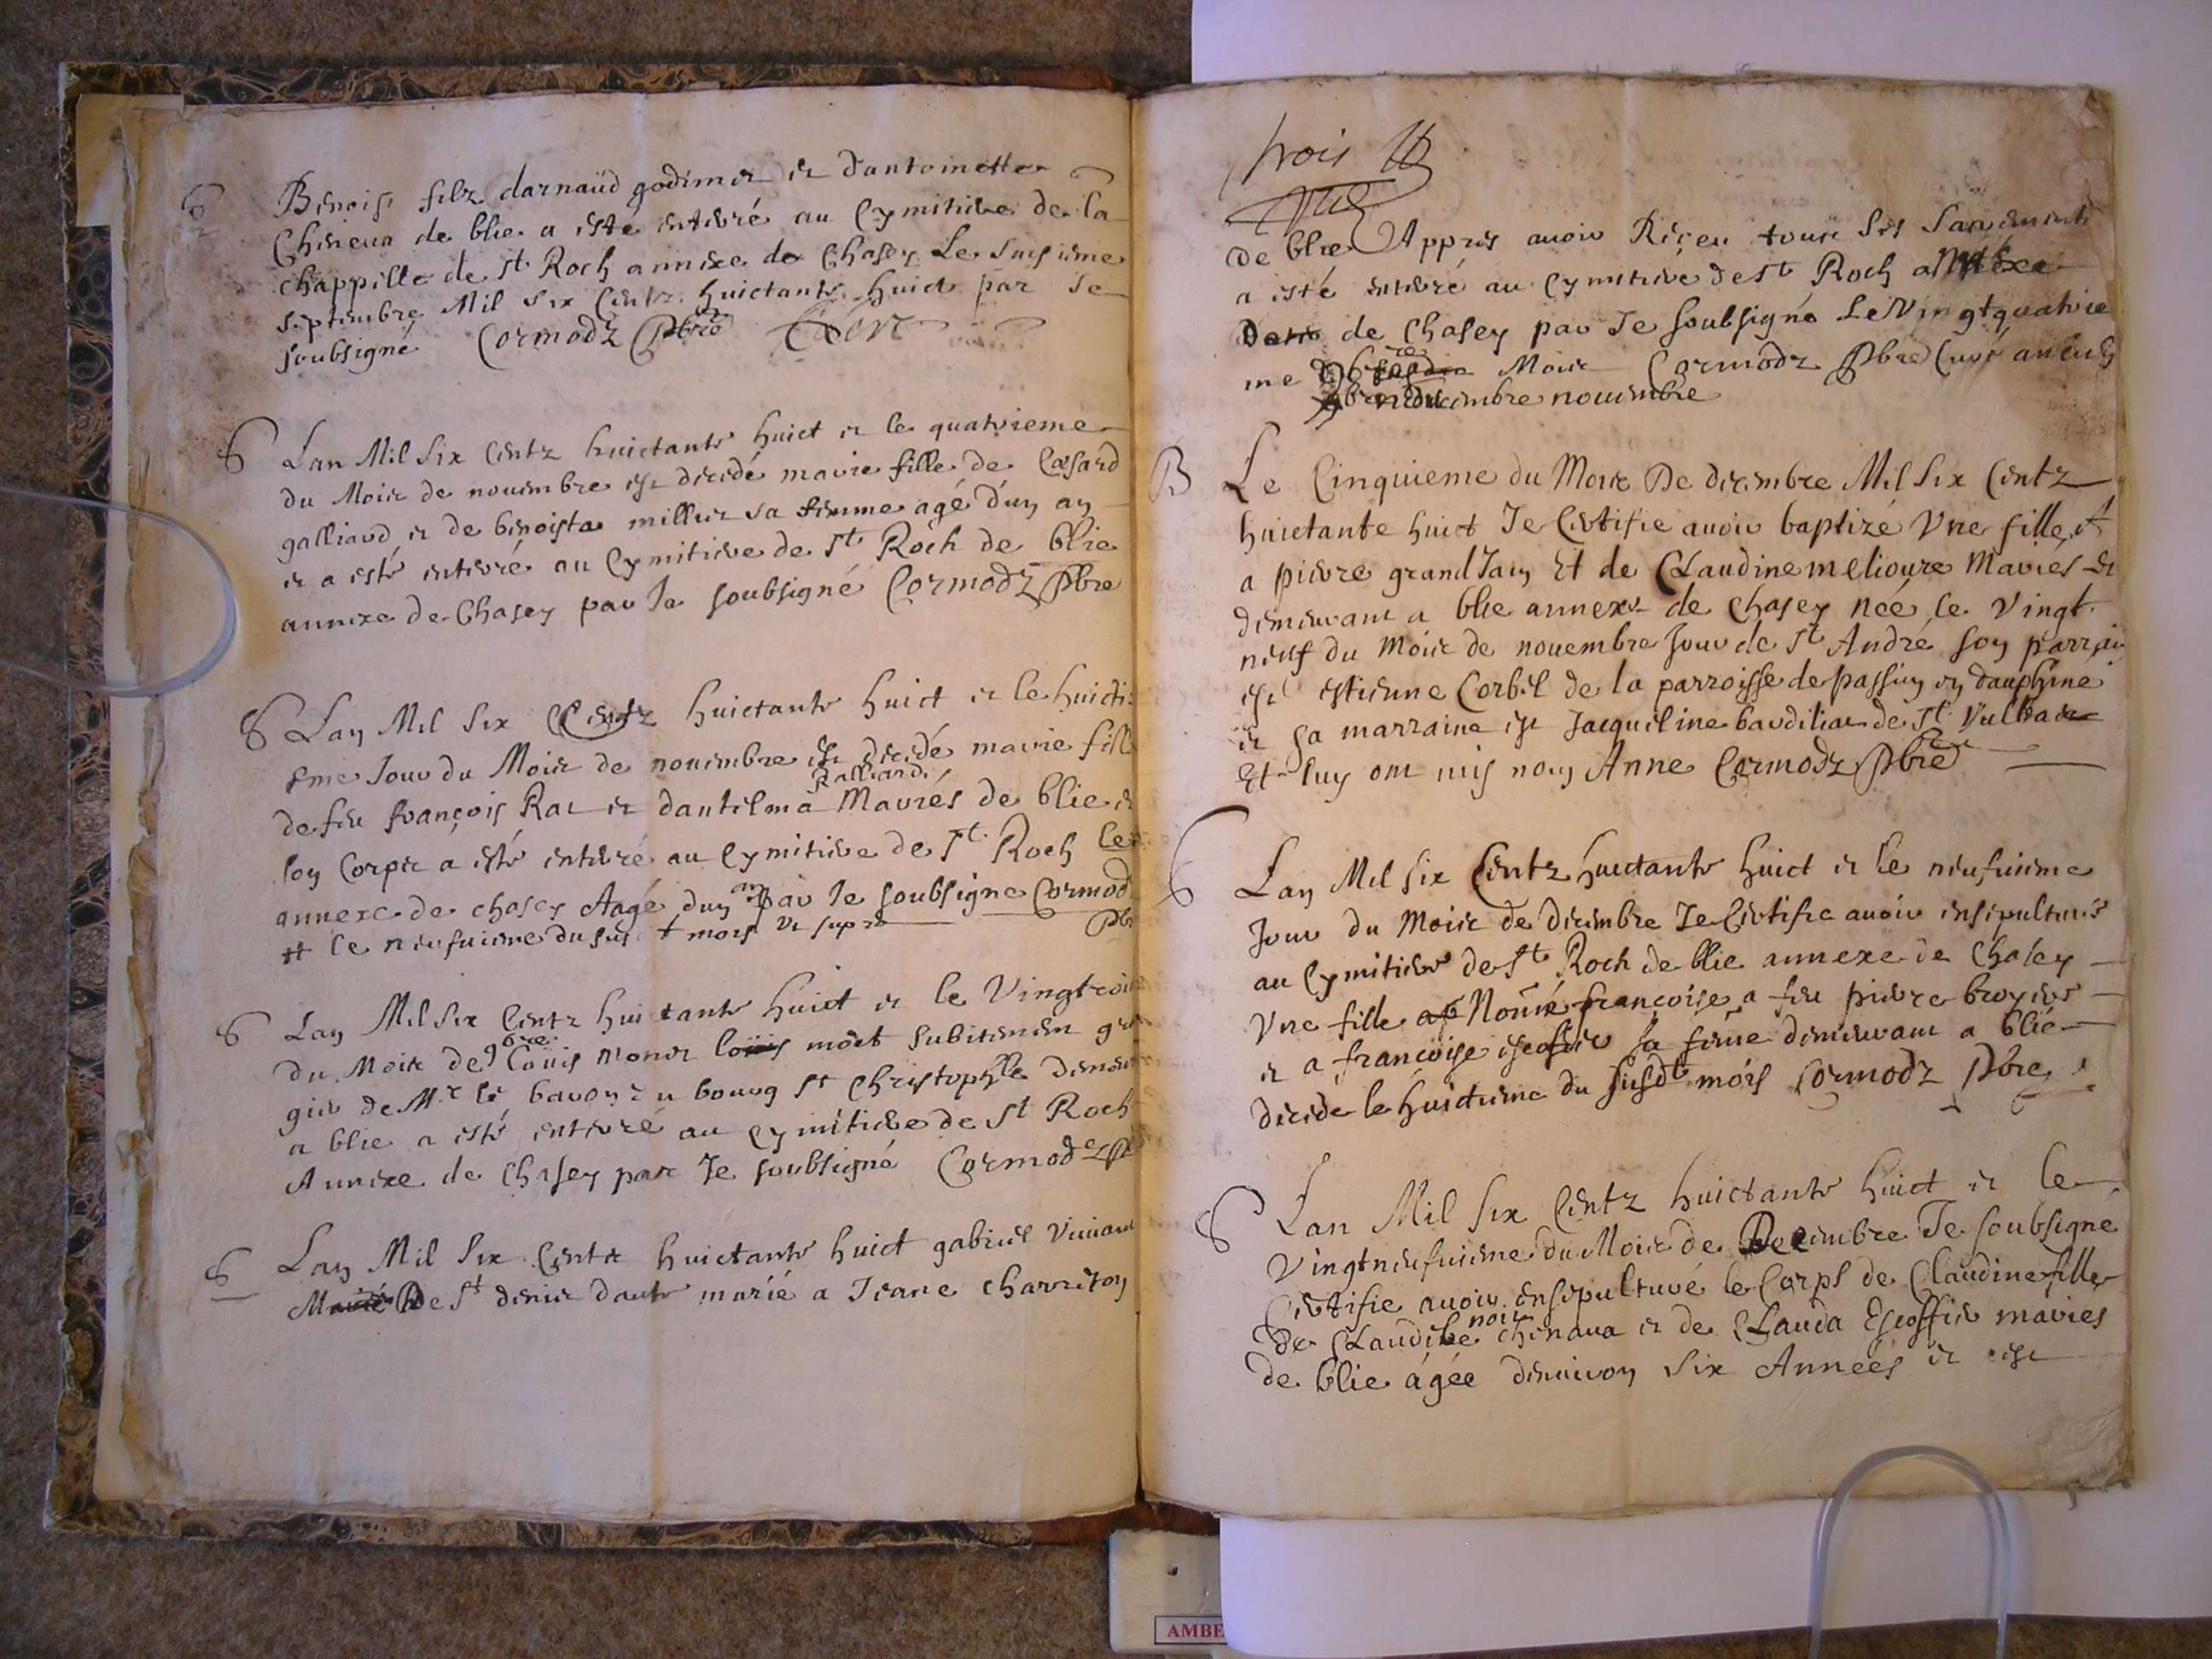 S
Benoist filz darnaud godimer et dantoinette
Cheneva de blie a esté enterré au Cymitiere de la
chappelle de st Roch annexe de Chasey Le
septembre Mil six Centz huictante huict par Je
soubsigné Cormodz pbre
S Lan Mil Six Centz huictante huict et le quatrieme
du Mois de novembre est decedé marie fille de Cæsard
galliard et de benoista millier sa femme agé d'un an
et a esté enterré au Cymitiere de st Roch de blie
annexe de Chasey par Je soubsigné Cormodz pbre
S Lan Mil Six Centz huictante huict et le huicti
eme Jour du Mois de novembre est decedé marie fill
Ralliard
de feu françois Rat et dantelma Mariés de blie et
son Corps a esté enterré au Cymitiere de st Roch le
annexe de chasey Aagé dun an par Je soubsigne Cormod
# le neufuieme du sus t mois Vt supra pbr
S Lan Mil Six Centz huictante huict et le Vingtrois
du Mois de 9bre Louis monet mort subitement
de Mr le baron du bourg st Christophle demeur
a blie a esté enterré au Cymitiere de st Roch
Annexe de Chasey par Je soubsigné Cormodz p
S Lan Mil Six Centz huictante huict gabriel Viuian
De st denis dant marié a Jeane charreton
trois
de blie Appres avoir Reçeu tous ses sacrements
a esté enterré au Cymitiere de st Roch annexe
de Chasey par Je soubsigné Le Vingtquatrie
me Mois Cormodz pbre Curé
novembre
B Le Cinquieme du Mois De decembre Mil Six Centz
huictante huict Je Certifie avoir baptizé Vne fille
a pierre grandJan Et de Claudine melioure Maries et
demeurant a blie annexe de chasey née le Vingt
neuf du Mois de novembre Jour de st André son parrain
est estienne Corbel de la parroisse de passin en dauphiné
et sa marraine est Jacqueline bardiliat de st Vulbas
Et luy ont mis nom Anne Cormodz pbre
S Lan Mil six Centz huictante huict et le neufuieme
Jour du Mois de decembre Je Certifie avoir ensepulturé
au Cymitiere de st Roch de blie annexe de Chasey
Vne fille Nomée françoise a feu pierre broyer
et a françoise escoffier sa feme demeurant a blie
decede le huictieme du susdt mois Cormodz pbre
S Lan Mil Six Centz huictante huict et le
Vingtneufuieme du Mois de Decembre Je soubsigné
Certifie avoir ensepulturé le Corps de Claudine fille
de Claude chenava et de Clauda Escoffier maries
de blie ágée denuiron Six Années et est
AMBE